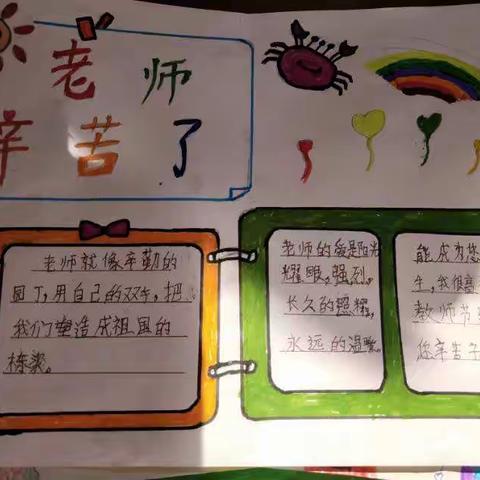 老师
辛苦了
老师就像辛勤的
园丁,用自己的双手,把
我们塑造成祖国的
栋梁。
老师的爱是阳光
耀眼,强烈,
长久的照耀,
永远的温暖。
能成为您
生,我很高
教师节
你辛苦了